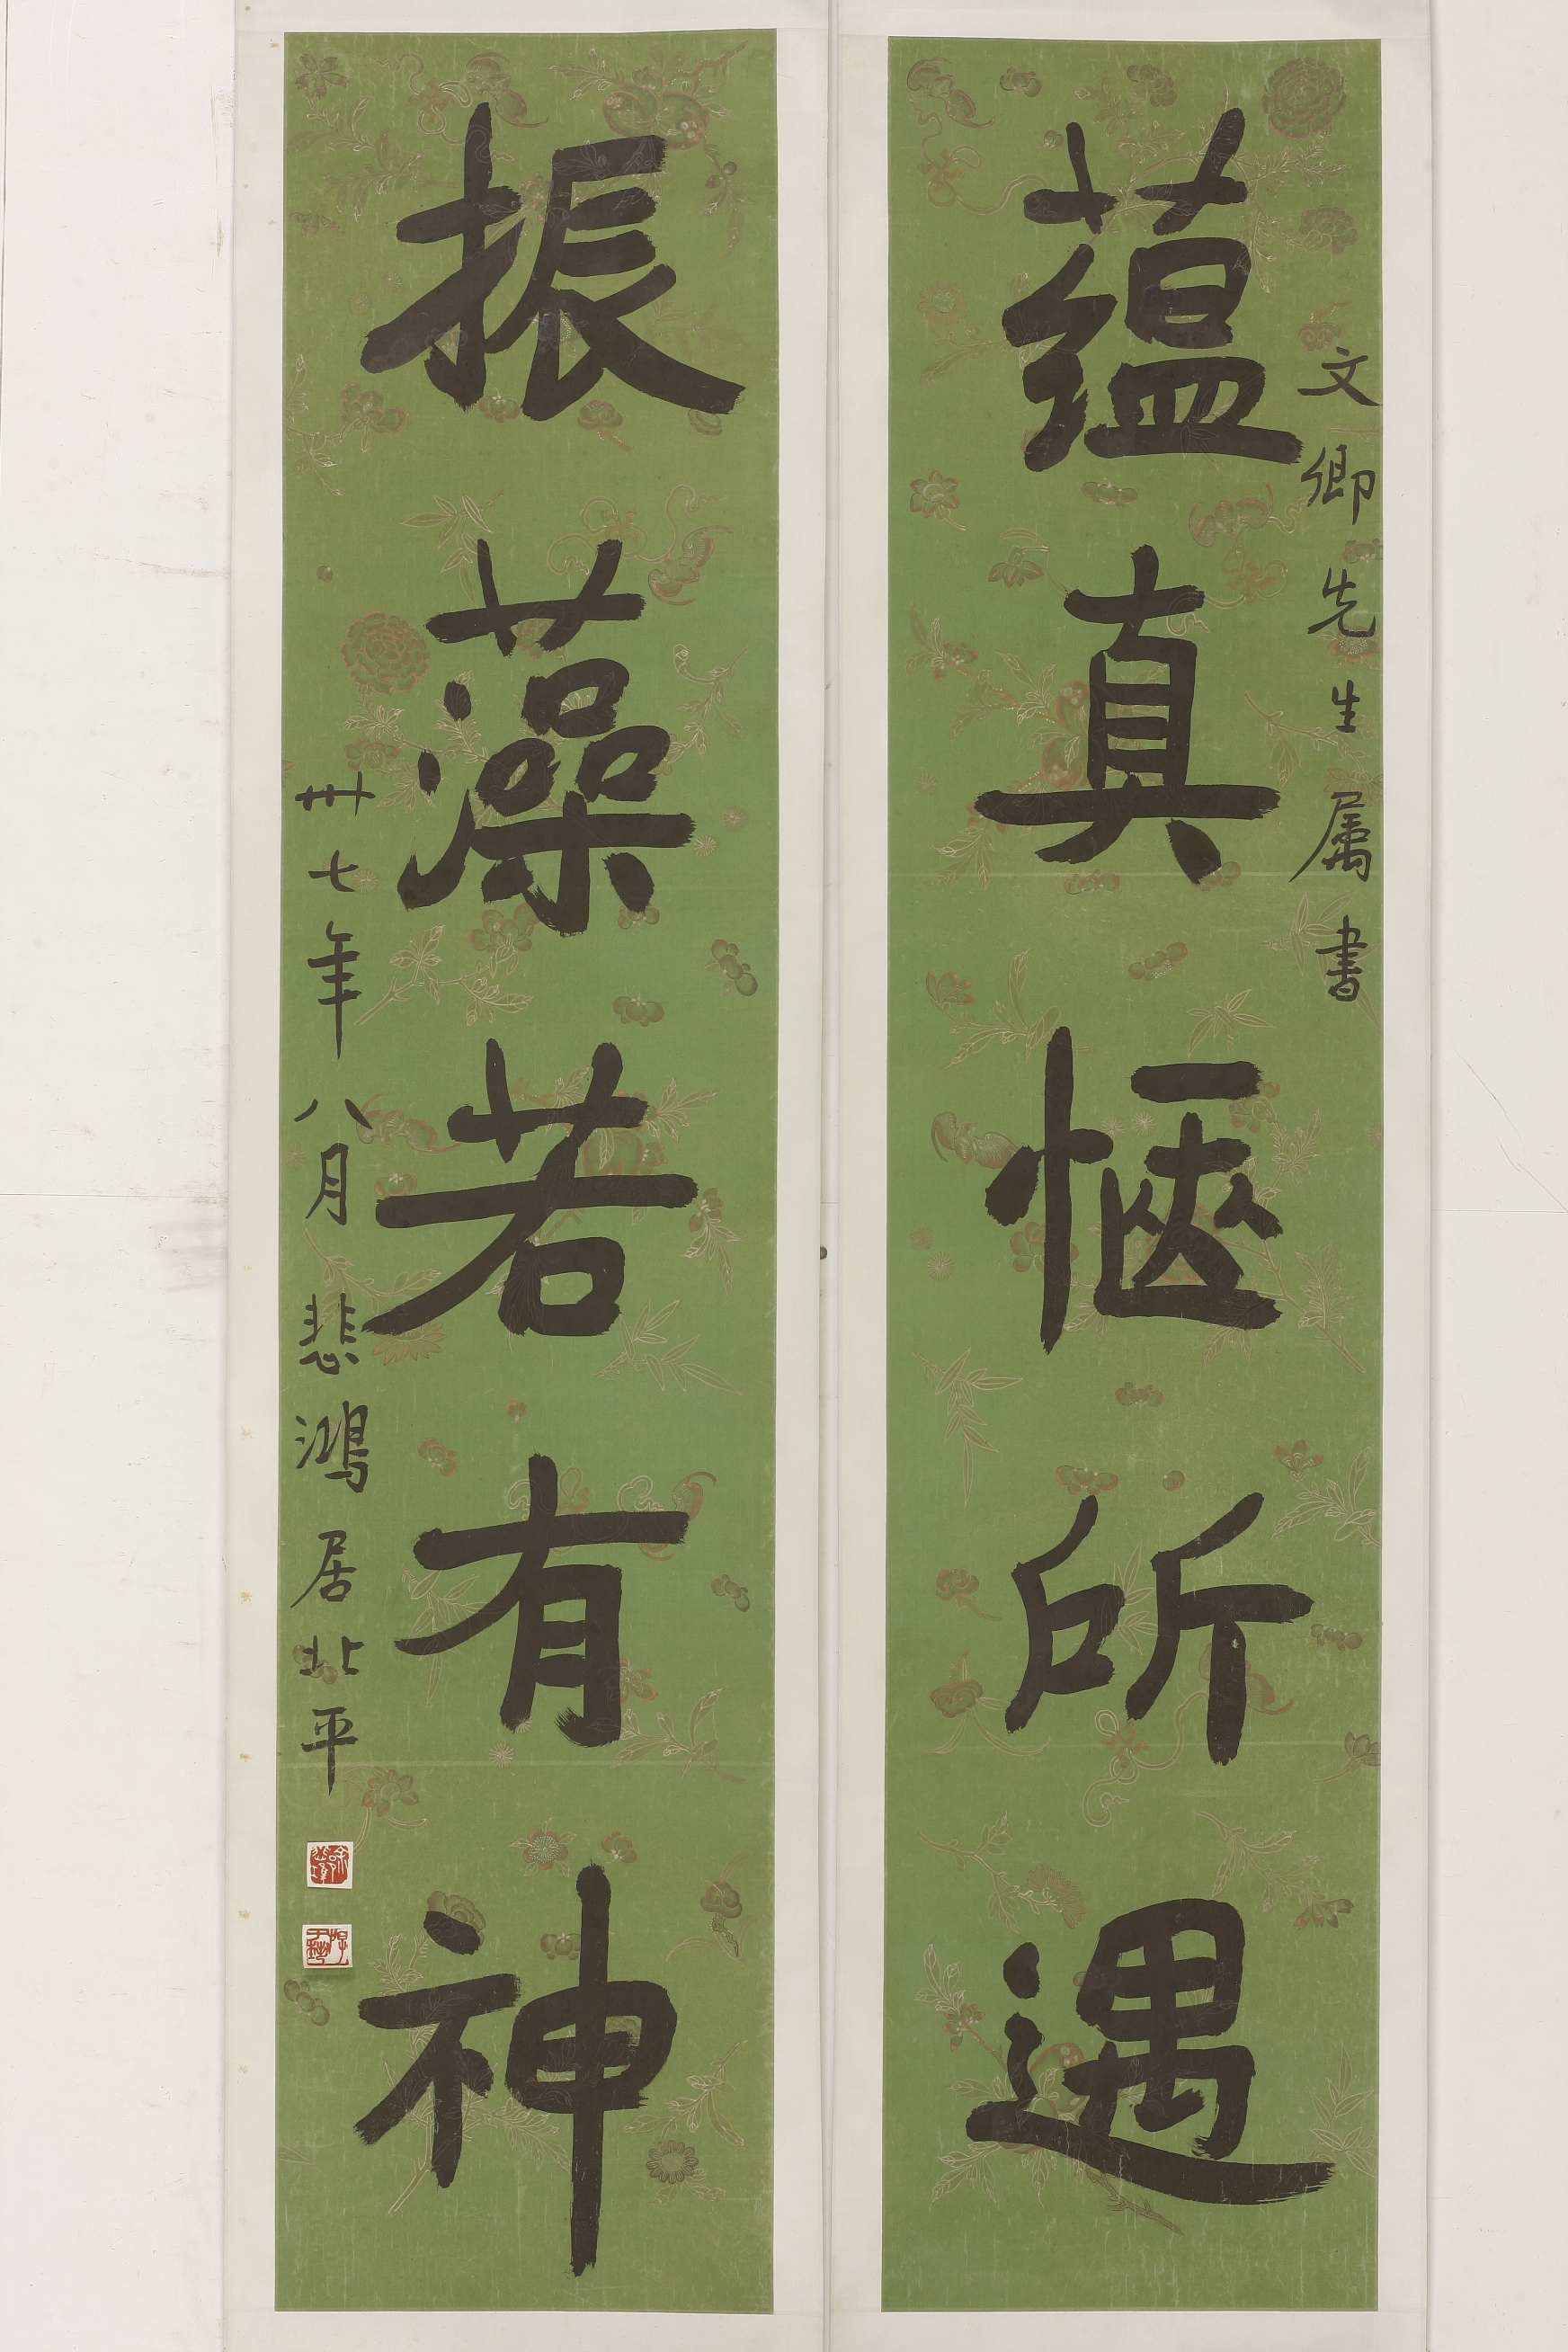 文卿先生属書
蕴真惬所遇
振藻若有神
卅七年八月悲鴻居北平